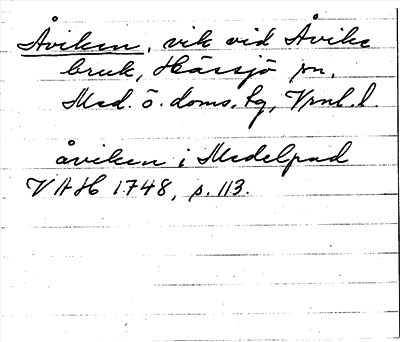 Åviken, vik vid Åviks
bruk, Hässjö sn,
Med. ö. doms. tg, Vnl. l.
åviken i Medelpad
VAH 1748, p. 113.